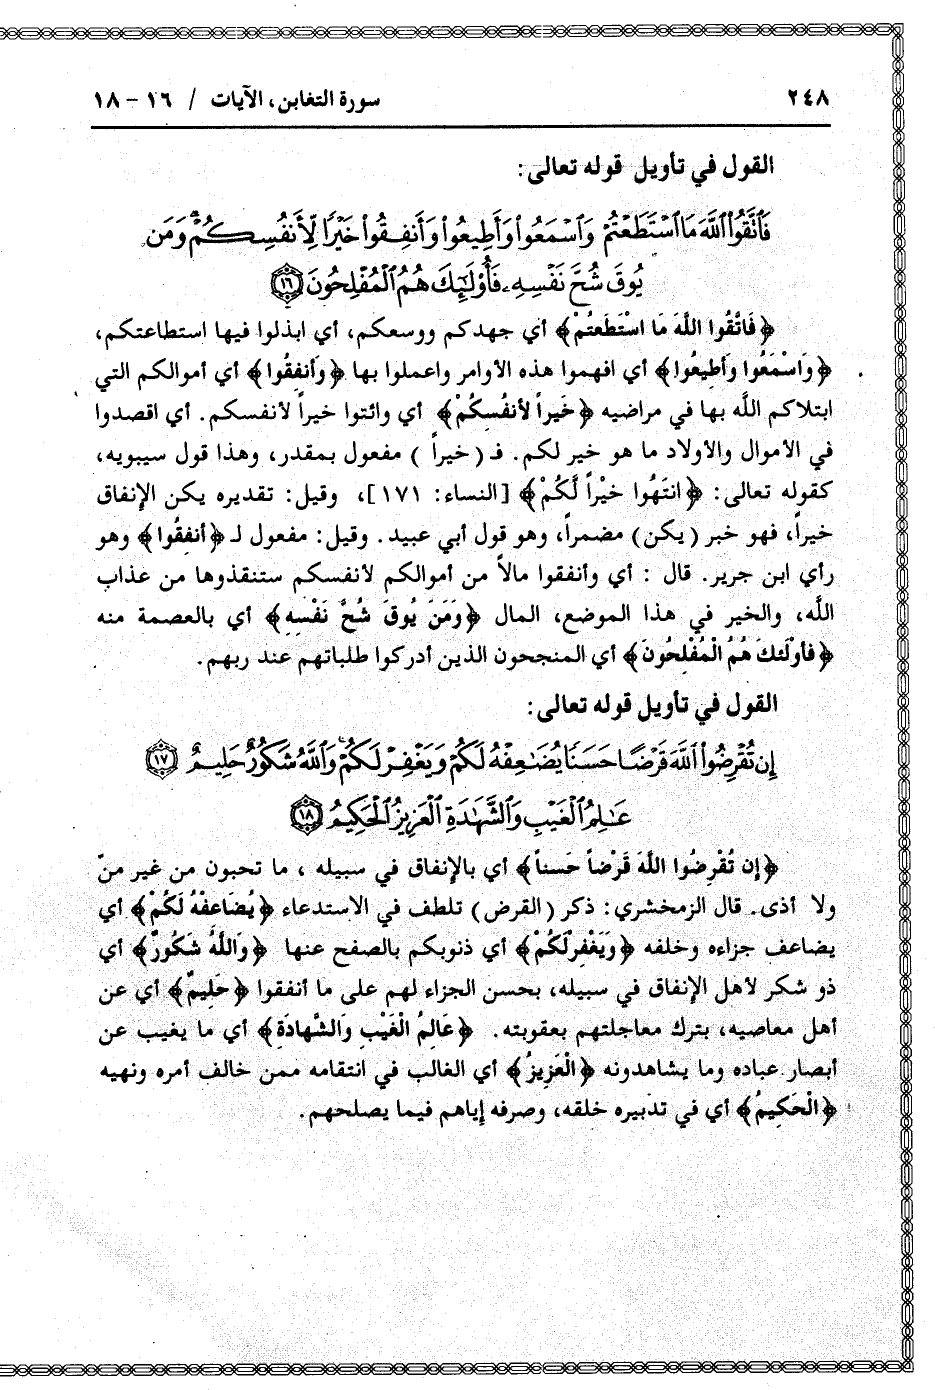 ٢٤٨
سورة التغابن، الآيات / ١٦ - ١٨
القول في تأويل قوله تعالى:
فَٱتَّقُوا۟ ٱللَّهَ مَا ٱسْتَطَعْتُمْ وَٱسْمَعُوا۟ وَأَطِيعُوا۟ وَأَنفِقُوا۟ خَيْرًا لِّأَنفُسِكُمْ ۗ وَمَن
يُوقَ شُحَّ نَفْسِهِۦ فَأُو۟لَٰٓئِكَ هُمُ ٱلْمُفْلِحُونَ ١٦
﴿فَاتَّقُوا اللَّهَ مَا اسْتَطَعْتُمْ﴾ أي جهدكم ووسعكم، أي ابذلوا فيها استطاعتكم،
﴿وَاسْمَعُوا وَأَطِيعُوا﴾ أي افهموا هذه الأوامر واعملوا بها ﴿وَأَنفِقُوا﴾ أي أموالكم التي
ابتلاكم اللَّه بها في مراضيه ﴿خَيراً لأَنفُسكُمْ﴾ أي وائتوا خيراً لأنفسكم. أي اقصدوا
في الأموال والأولاد ما هو خير لكم. فـ (خيراً ) مفعول بمقدر، وهذا قول سيبويه،
كقوله تعالى: ﴿انتَهُوا خَيْراً لَّكُمْ﴾ [النساء: ١٧١]، وقيل: تقديره يكن الإنفاق
خيراً، فهو خبر (يكن) مضمراً، وهو قول أبي عبيد. وقيل: مفعول لـ ﴿أنفِقُوا﴾ وهو
رأي ابن جرير. قال : أي وأنفقوا مالاً من أموالكم لأنفسكم ستنقذوها من عذاب
اللَّه، والخير في هذا الموضع، المال ﴿وَمَنَ يُوقَ شُحَّ نَفْسِهِ﴾ أي بالعصمة منه
﴿فَأُوْلَئكَ هُمُ الْمُفْلحُونَ﴾ أي المنجحون الذين أدركوا طلباتهم عند ربهم.
القول في تأويل قوله تعالى:
إِن تُقْرِضُوا۟ ٱللَّهَ قَرْضًا حَسَنًا يُضَٰعِفْهُ لَكُمْ وَيَغْفِرْ لَكُمْ ۚ وَٱللَّهُ شَكُورٌ حَلِيمٌ ١٧
عَٰلِمُ ٱلْغَيْبِ وَٱلشَّهَٰدَةِ ٱلْعَزِيزُ ٱلْحَكِيمُ ١٨
﴿إن تُقْرِضُوا اللَّهَ قَرْضاً حَسناً﴾ أي بالإنفاق في سبيله ، ما تحبون من غير منّ
ولا أذى. قال الزمخشري: ذكر (القرض) تلطف في الاستدعاء ﴿يُضَاعفْهُ لَكُمْ﴾ أي
يضاعف جزاءه وخلفه ﴿وَيَغْفِرْلَكُمْ﴾ أي ذنوبكم بالصفح عنها ﴿وَاللَّهُ شَكُورٌ﴾ أي
ذو شكر لأهل الإنفاق في سبيله، بحسن الجزاء لهم على ما أنفقوا ﴿حَلِيمٌ﴾ أي عن
أهل معاصيه، بترك معاجلتهم بعقوبته. ﴿عَالِمُ الْغَيْبِ وَالشَّهَادَةِ﴾ أي ما يغيب عن
أبصار عباده وما يشاهدونه ﴿الْعَزِيزُ﴾ أي الغالب في انتقامه ممن خالف أمره ونهيه
﴿الْحَكِيمُ﴾ أي في تدبيره خلقه، وصرفه إياهم فيما يصلحهم.